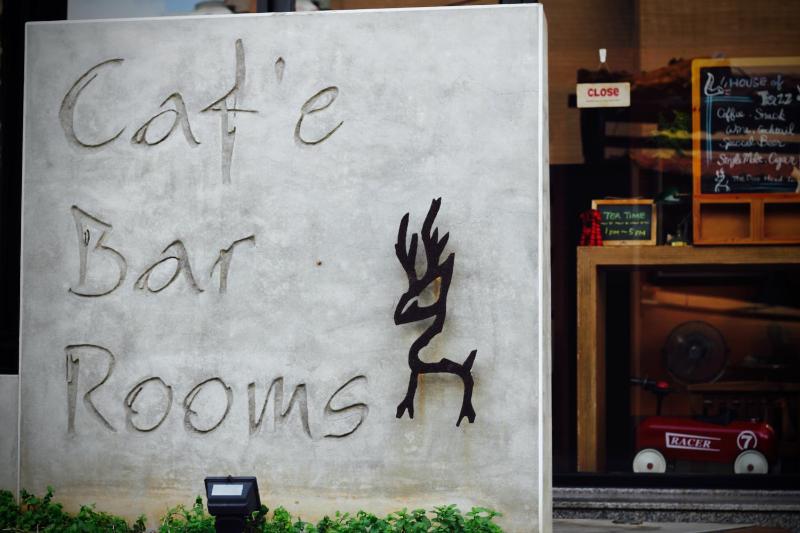 Caf'e
Bar
Rooms
CLOSE
HOUSE of
Jazz
Coffee. Snack
Wine. Cocktail
Special Beer
Single Malt. Cigar
TEA TIME
1pm~5pm
RACER 7